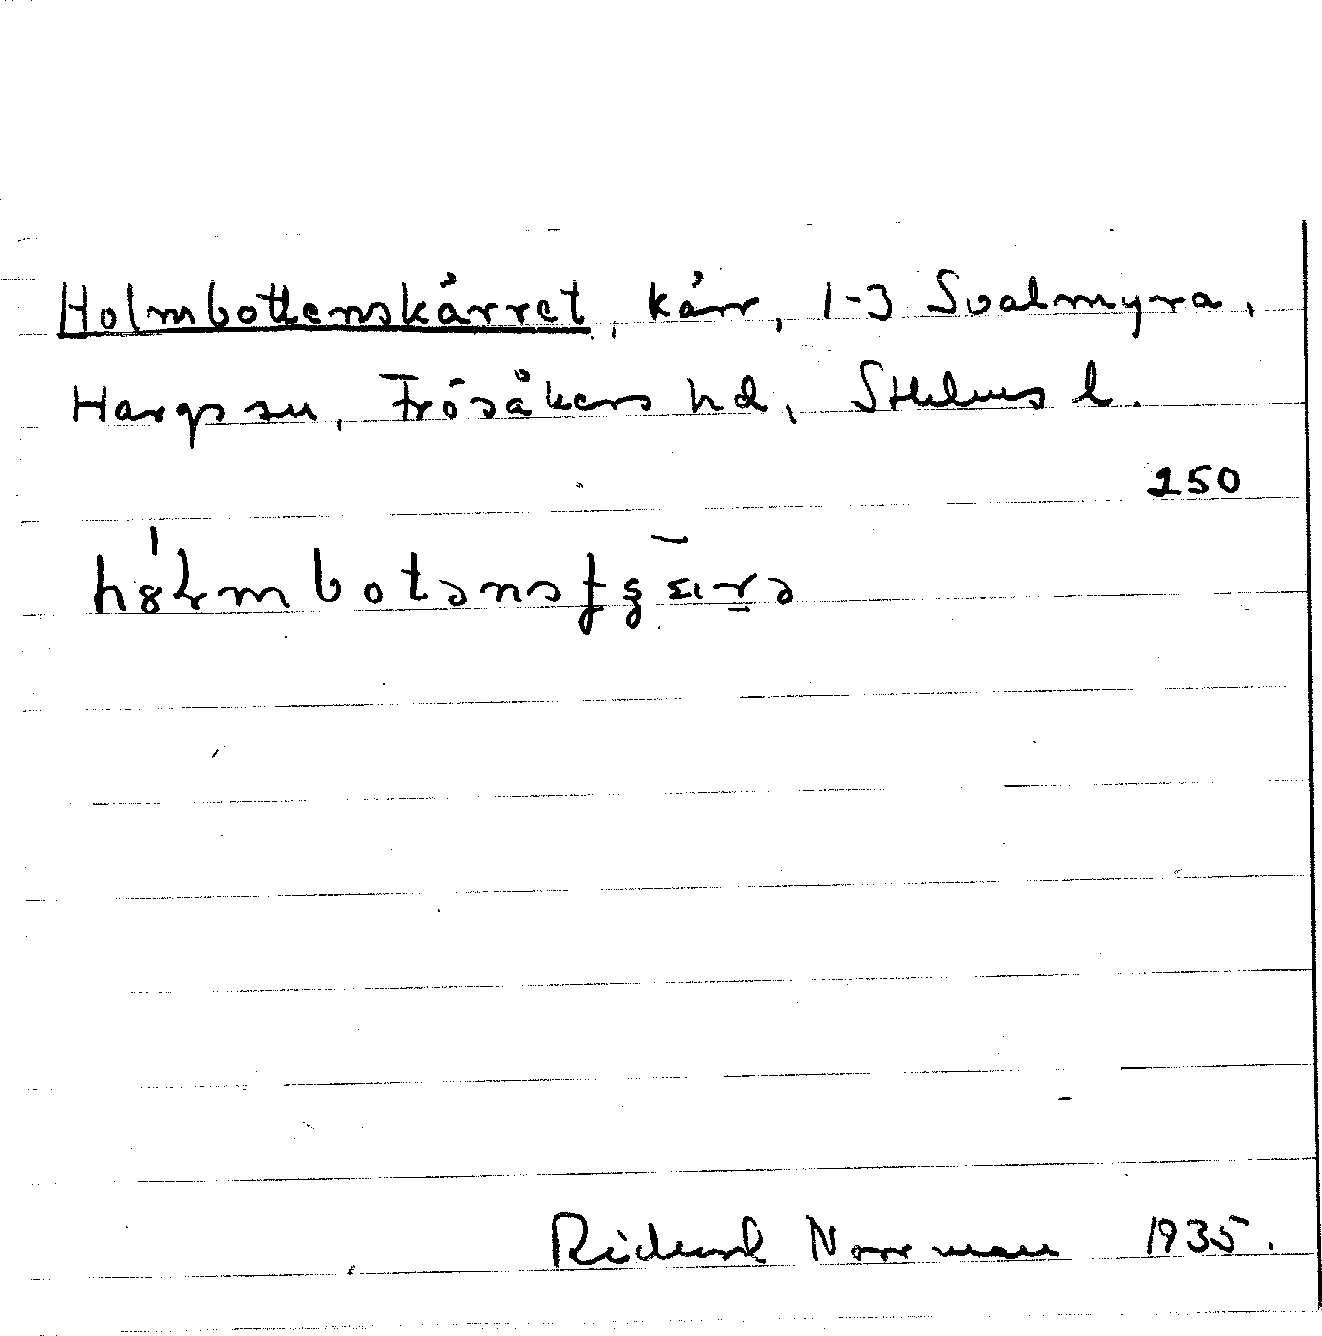 Holmbottenskärret, kärr, 1-3 Svalmyra,
Hargs sn, Frösåkers hd, Sthlms l.
250
Rickard Norrman 1935.